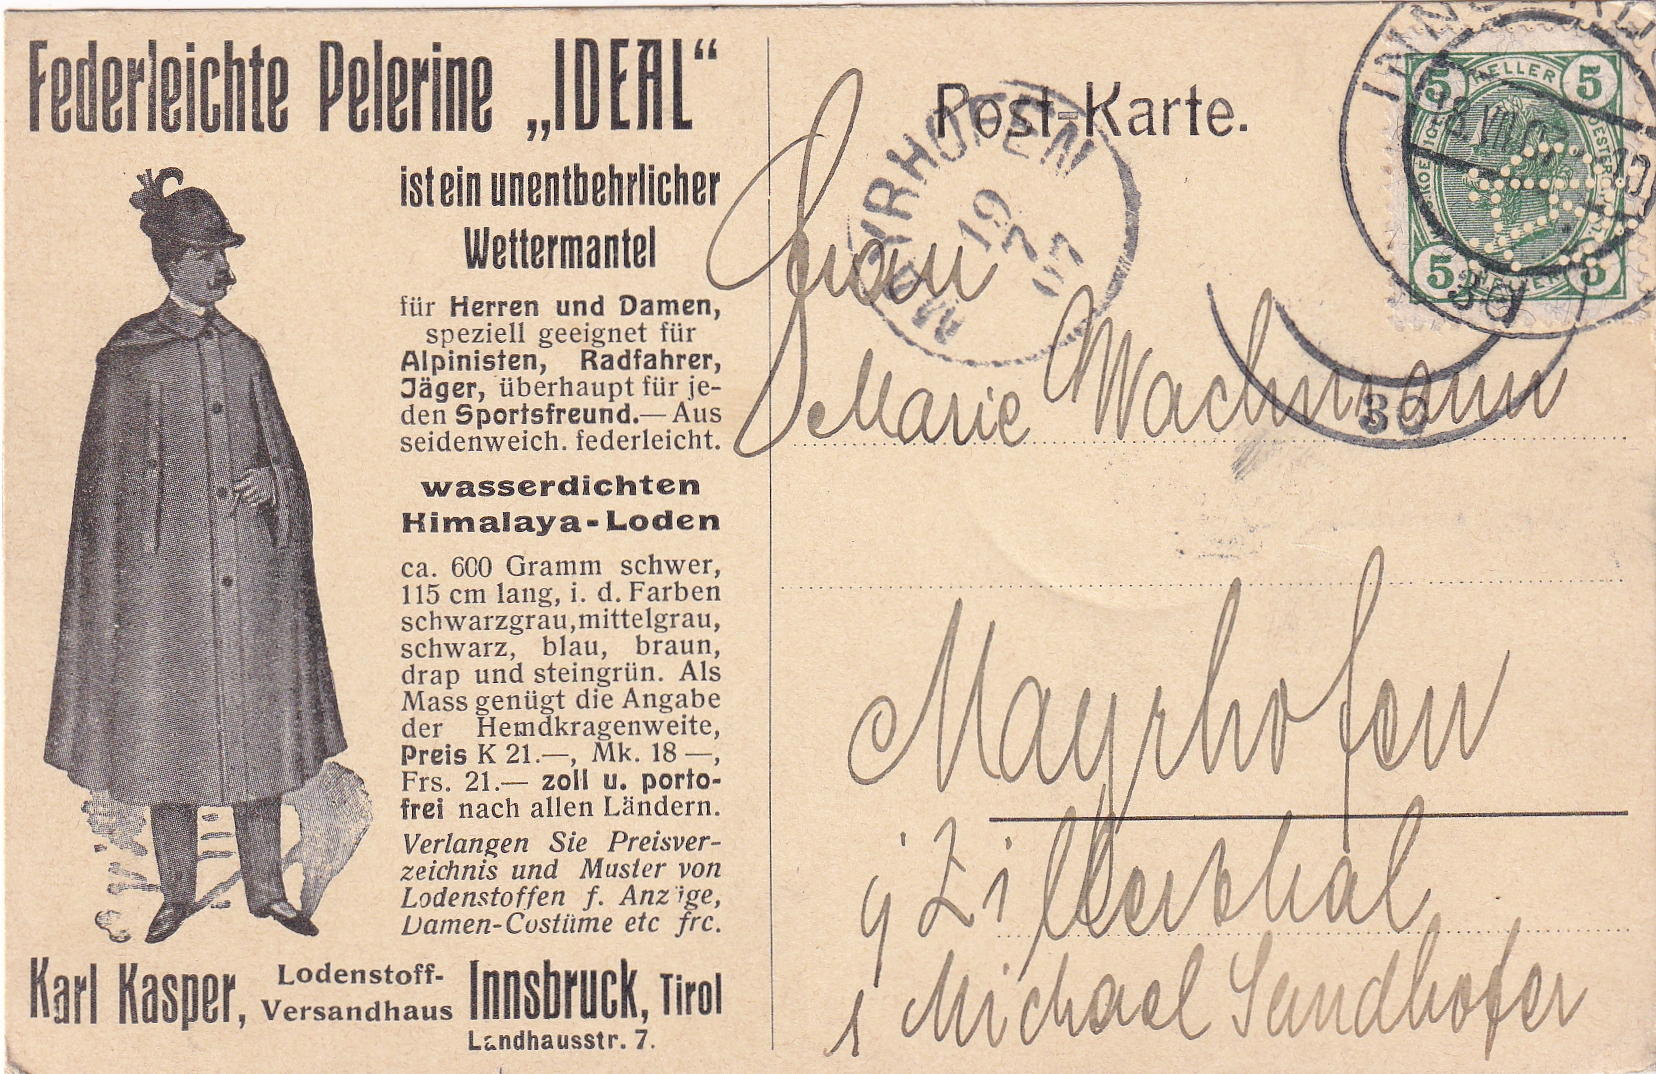 Federleichte Pelerine „IDEAL“
ist ein unentbehrlicher
Wettermantel
für Herren und Damen,
speziell geeignet für
Alpinisten, Radfahrer,
Jäger, überhaupt für je-
den Sportsfreund.— Aus
seidenweich. federleicht.
wasserdichten
Himalaya-Loden
ca. 600 Gramm schwer,
115 cm lang, i. d. Farben
schwarzgrau, mittelgrau,
schwarz, blau, braun,
drap und steingrün. Als
Mass genügt die Angabe
der Hemdkragenweite,
Preis K 21.—, Mk. 18 —,
Frs. 21.— zoll u. porto-
frei nach allen Ländern.
Verlangen Sie Preisver-
zeichnis und Muster von
Lodenstoffen f. Anzüge,
Damen-Costüme etc frc.
Karl Kasper, Lodenstoff-
Versandhaus Innsbruck, Tirol
Landhausstr. 7.
Post-Karte.
MAYRHOFEN
19
7
07
5 HELLER 5
5 5
18.VII.07
3d
36
Frau
Marie Wachmann
Mayrhofen
Zillerthal
Michael Sandhofer